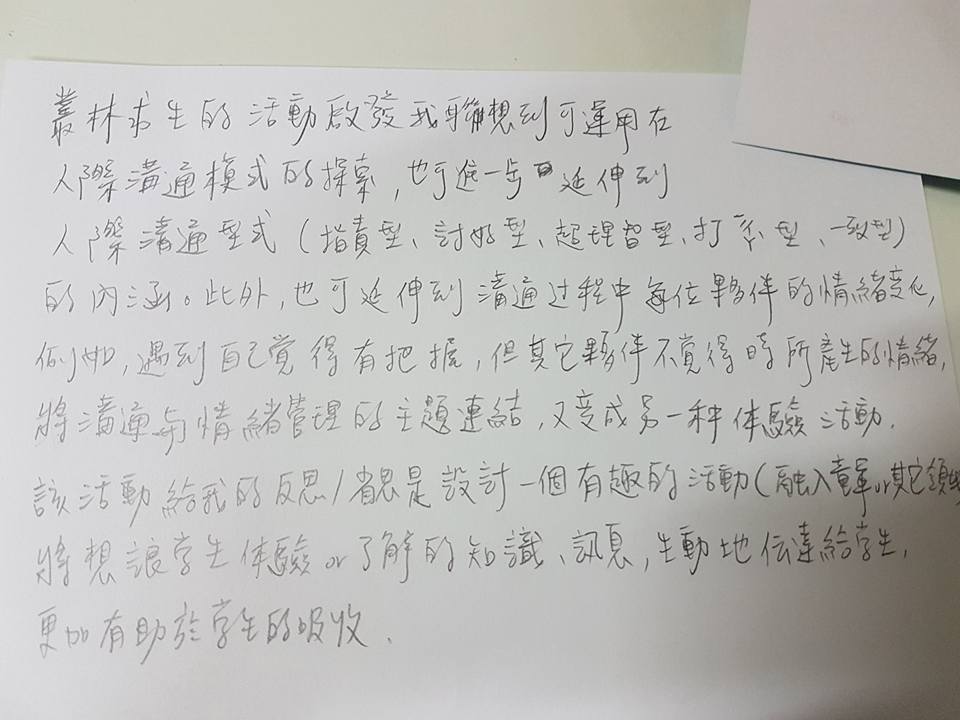 叢林求生的活動啟發我聯想到可運用在
人際溝通模式的探索，也可進一步延伸到
人際溝通型式（指責型、討好型、超理智型、打岔型、一致型）
的內涵。此外，也可延伸到溝通过程中每位夥伴的情緒变化，
例如，遇到自己覚得有把握，但其它夥伴不覚得時所產生的情緒，
將溝通與情緒管理的主題連結，又变成另一种体驗活動．
該活動給我的反思/省思是設計一個有趣的活動（融入童軍or其它領域
將想讓学生体驗or了解的知識、訊息，生動地伝達給学生，
更加有助於学生的吸收．